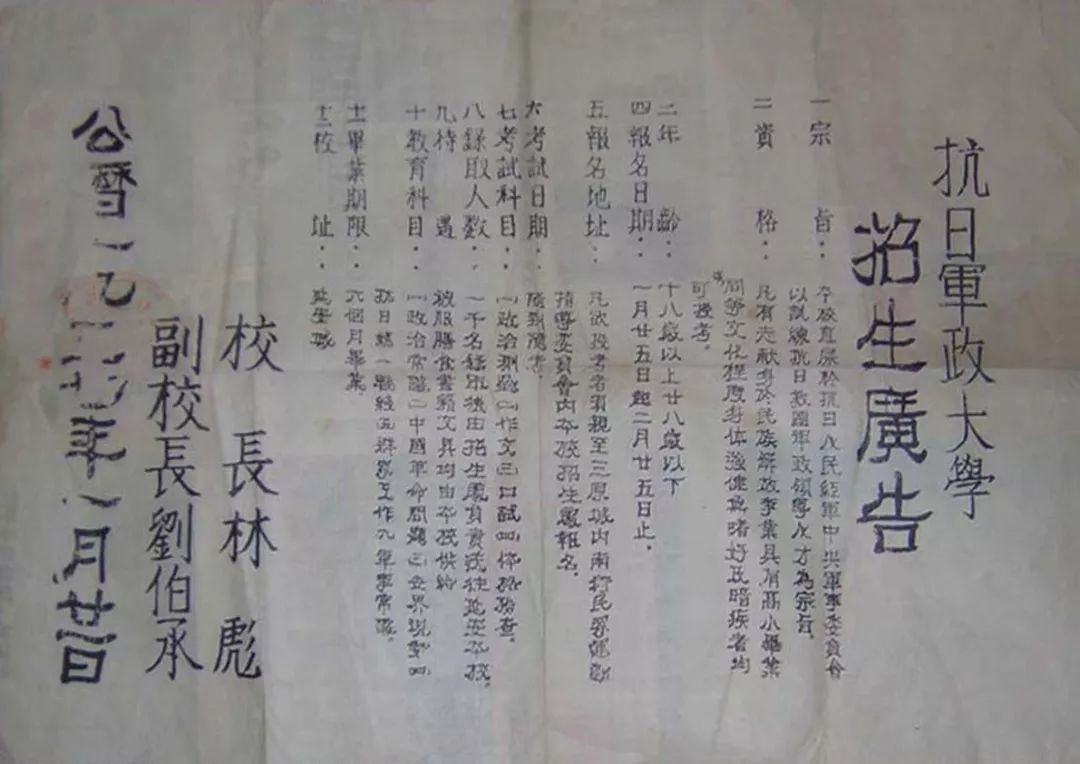 抗日軍政大學
招生廣告
一宗旨．本校直屬於抗日人民紅軍中央軍事委員會
以訓練抗日救國軍政領導人才為宗旨．
二資格．凡有志獻身於民族解放事業具有高小畢業
同等文化程度身体強健無嗜好及暗疾者均
可投考．
二年齡．十八歲以上廿八歲以下
四報名日期．一月廿五日起二月廿五日止．
五報名地址．凡欲投考者須親至三原城内南行民眾運動
指導委員會内本校招生處報名．
六考試日期．隨到隨考．
七考試科目．㈠政治測驗㈡作文㈢口試㈣体格檢查．
八錄取人數．一千名錄取後由招生處負責送往延安本校．
九待遇．被服膳食書籍文具均由本校供給
十教育科目．㈠政治常識㈡中國革命問題㈢世界現勢㈣
抗日統一戰綫㈤群眾工作㈥軍事常識．
十一畢業期限．六個月畢業．
十二校址．延安城
校長林彪
副校長劉伯承
公曆一九三七年一月廿日